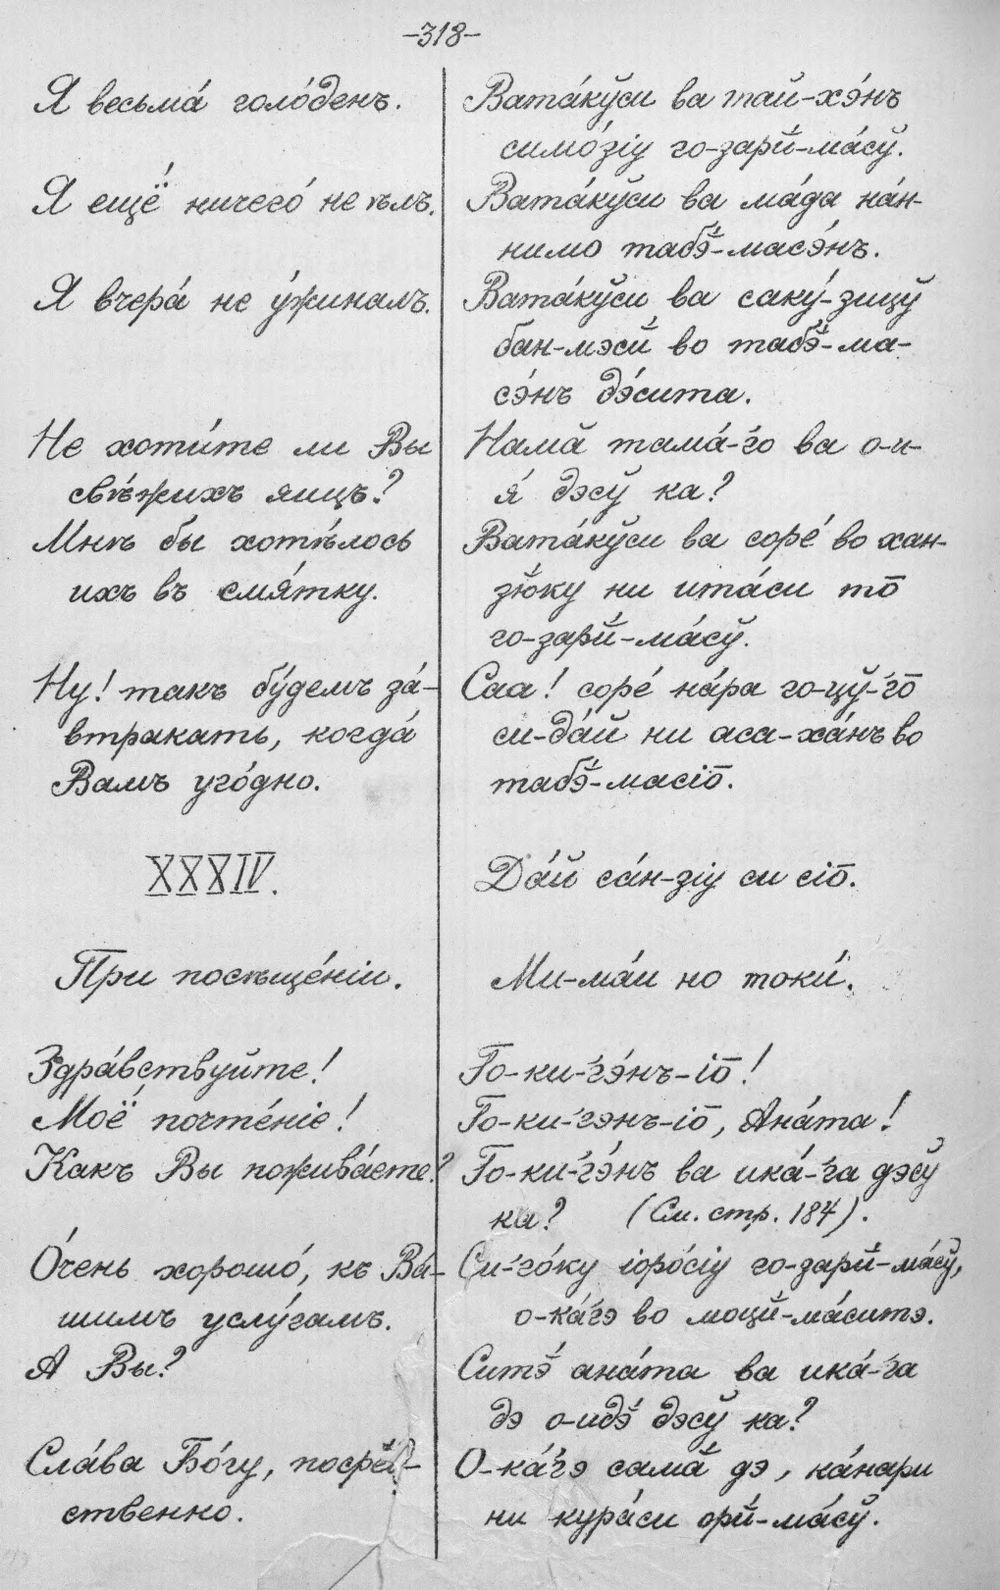 –318–
Я весьма́ голо́денъ.
Ватáкӯси ва тай-хэ́нъ
симо́зiу го-зарй-мáсӯ.
Я ещё ничего́ не ѣлъ.
Ватáкӯси ва мáда нáн-
нимо табэ̄́-масэ́нъ.
Я вчера́ не у́жиналъ.
Ватáкӯси ва саку́-зицӯ
бан-мэсй во табэ̄́-ма-
сэ́нъ дэ́сита.
Не хоти́те ли Вы
свѣ́жихъ яицъ?
Намā тамá-́го ва о-и-
я́ дэсӯ ка?
Мнѣ бы хотѣ́лось
ихъ въ смя́тку.
Ватáкӯси ва соре́ во хан-
зю̄́ку ни итáси то̄
го-зарй-мáсӯ.
Ну! такъ бу́демъ зá-
втракать, когда́
Вамъ уго́дно.
Саа! соре́ нáра го-цӯ-́го̄
си-дáй ни аса-хáнъ во
табэ̄́-масiо̄.
XXXIV.
Дáй сáн-зiу си сiо̄.
При посѣще́нiи.
Ми-мáи но токи́.
Здра́вствуйте!
Го-ки-́гэ́нъ-iо̄!
Моё почте́нiе!
Го-ки-́гэнъ-iо̄, Анáта!
Какъ Вы пожива́ете?
Го-ки-́гэ́нъ ва икá-́га дэсӯ
ка? (См. стр. 184).
О́чень хорошо́, къ Вá-
шимъ услу́гамъ.
Си-́го́ку iоро́сiу го-зарй-мáсӯ,
о-кá́гэ во моцй-мáситэ.
А Вы?
Ситэ̄́ анáта ва икá-́га
дэ о-идэ̄́ дэсӯ ка?
Сла́ва Бо́гу, посре́д-
ственно.
О-кá́гэ самā дэ, кáнари
ни курáси орй-мáсӯ.